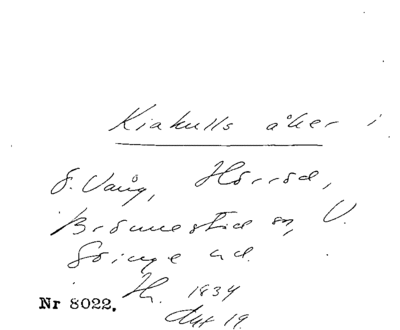 Kiakulls åker i
S. Vång, Hörröd,
Brönnestad sn, V.
Göinge hd.
Nr 8022.
1934